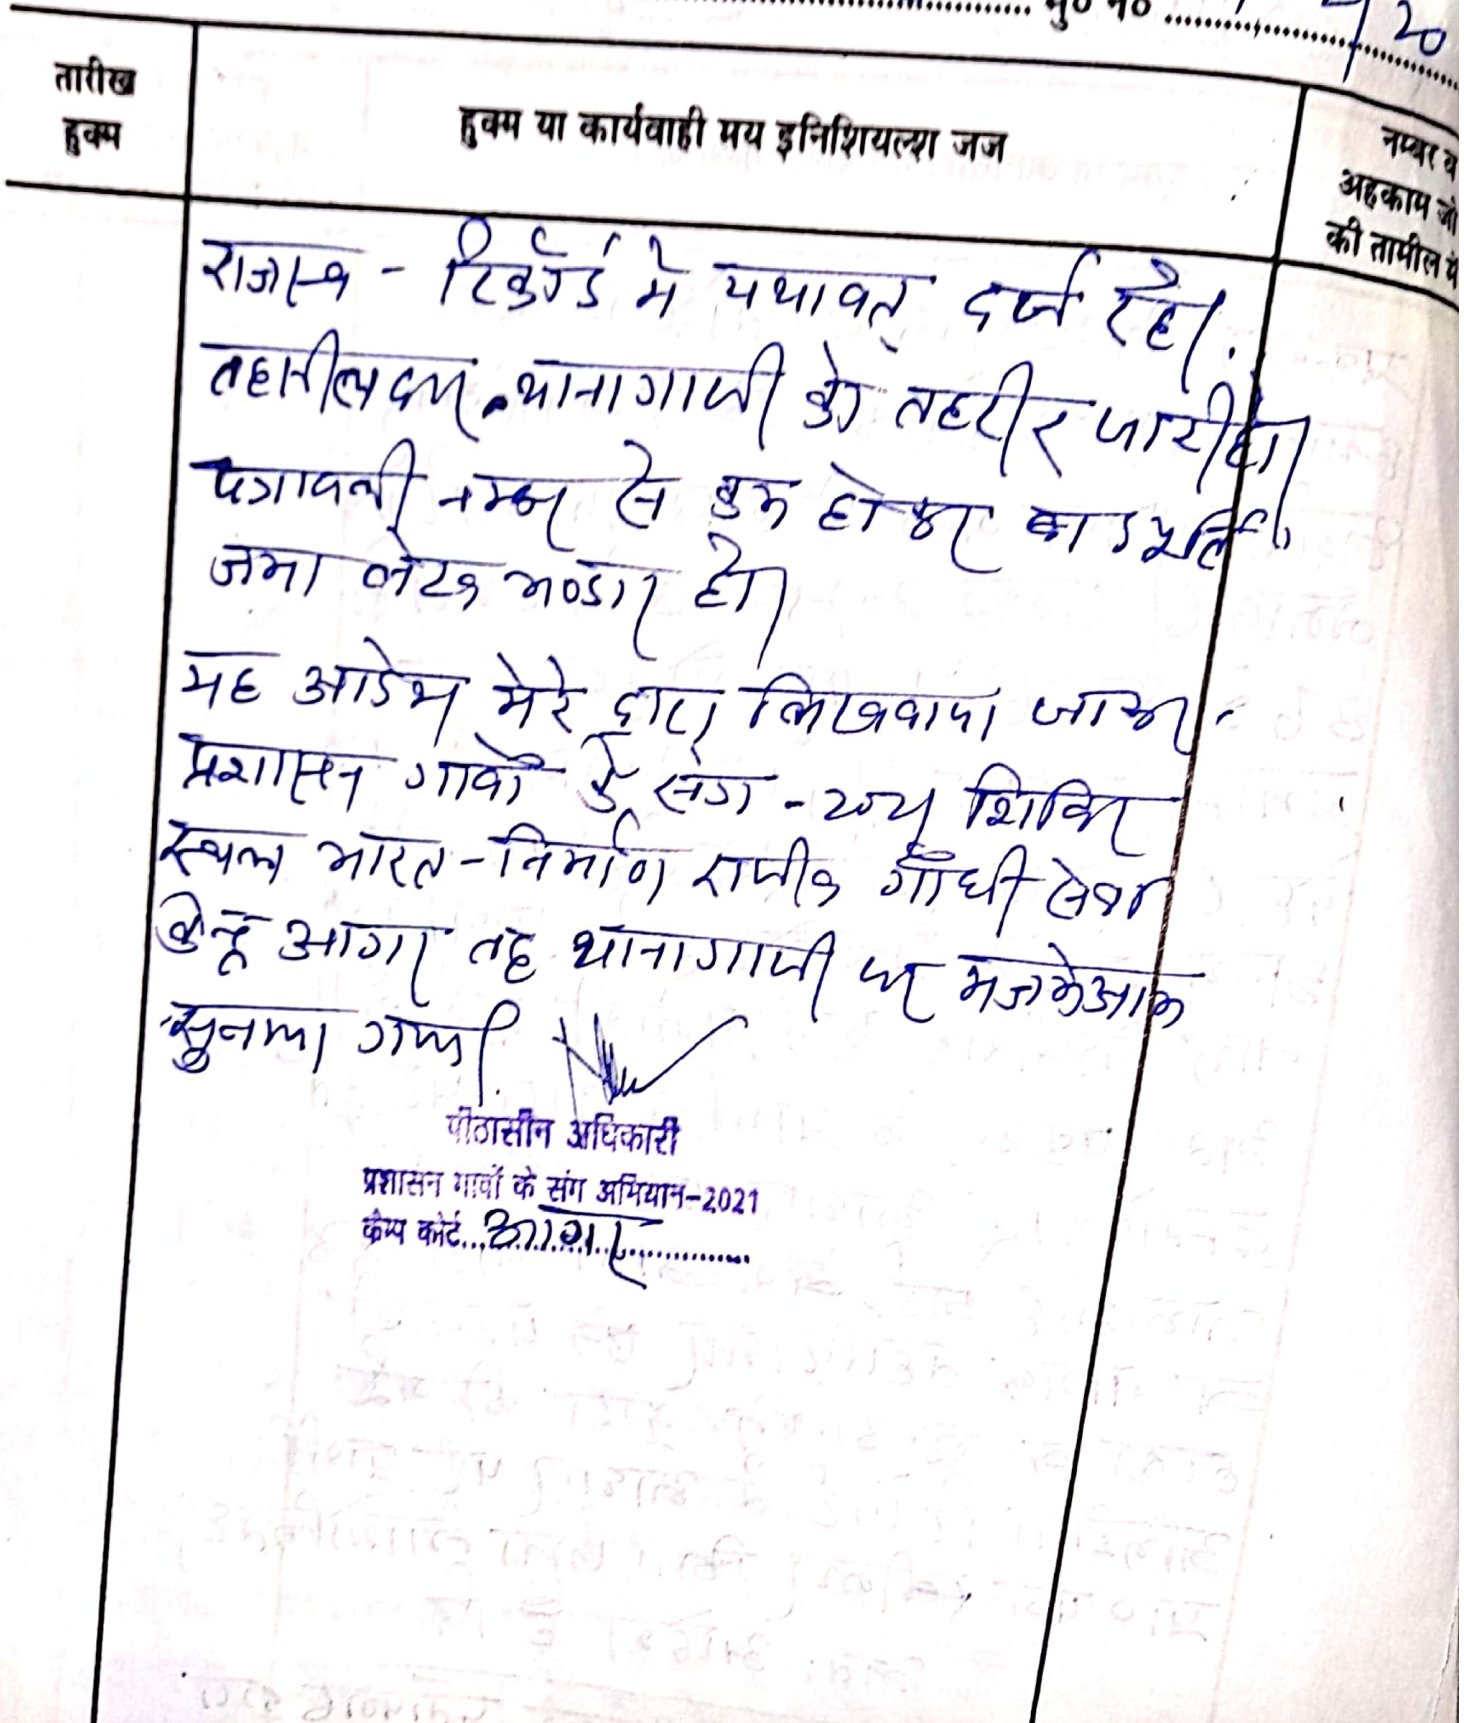 मु० न०
20
तारीख
हुक्म
हुक्म या कार्यवाही मय इनिशियल्श जज
नम्बर व
अहकाम जो
की तामील में
राजस्व - रिकॉर्ड मे यथावत् दर्ज रहे।
तहसीलदार थानागाजी को तहरीर जारी हो।
पत्रावली नम्बर से कम होकर बाद पूर्ति
जमा लेटर भण्डार हो।
यह आदेश मेरे द्वारा लिखवाया जाकर
प्रशासन गावों के संग - शिविर
स्थल भारत - निर्माण राजीव गाँधी सेवा
केन्द्र आगर तह थानागाजी पर मजमेआम
सुनाया गया।
पीठासीन अधिकारी
प्रशासन गावों के संग अभियान-2021
कैम्प कोर्ट...आगर